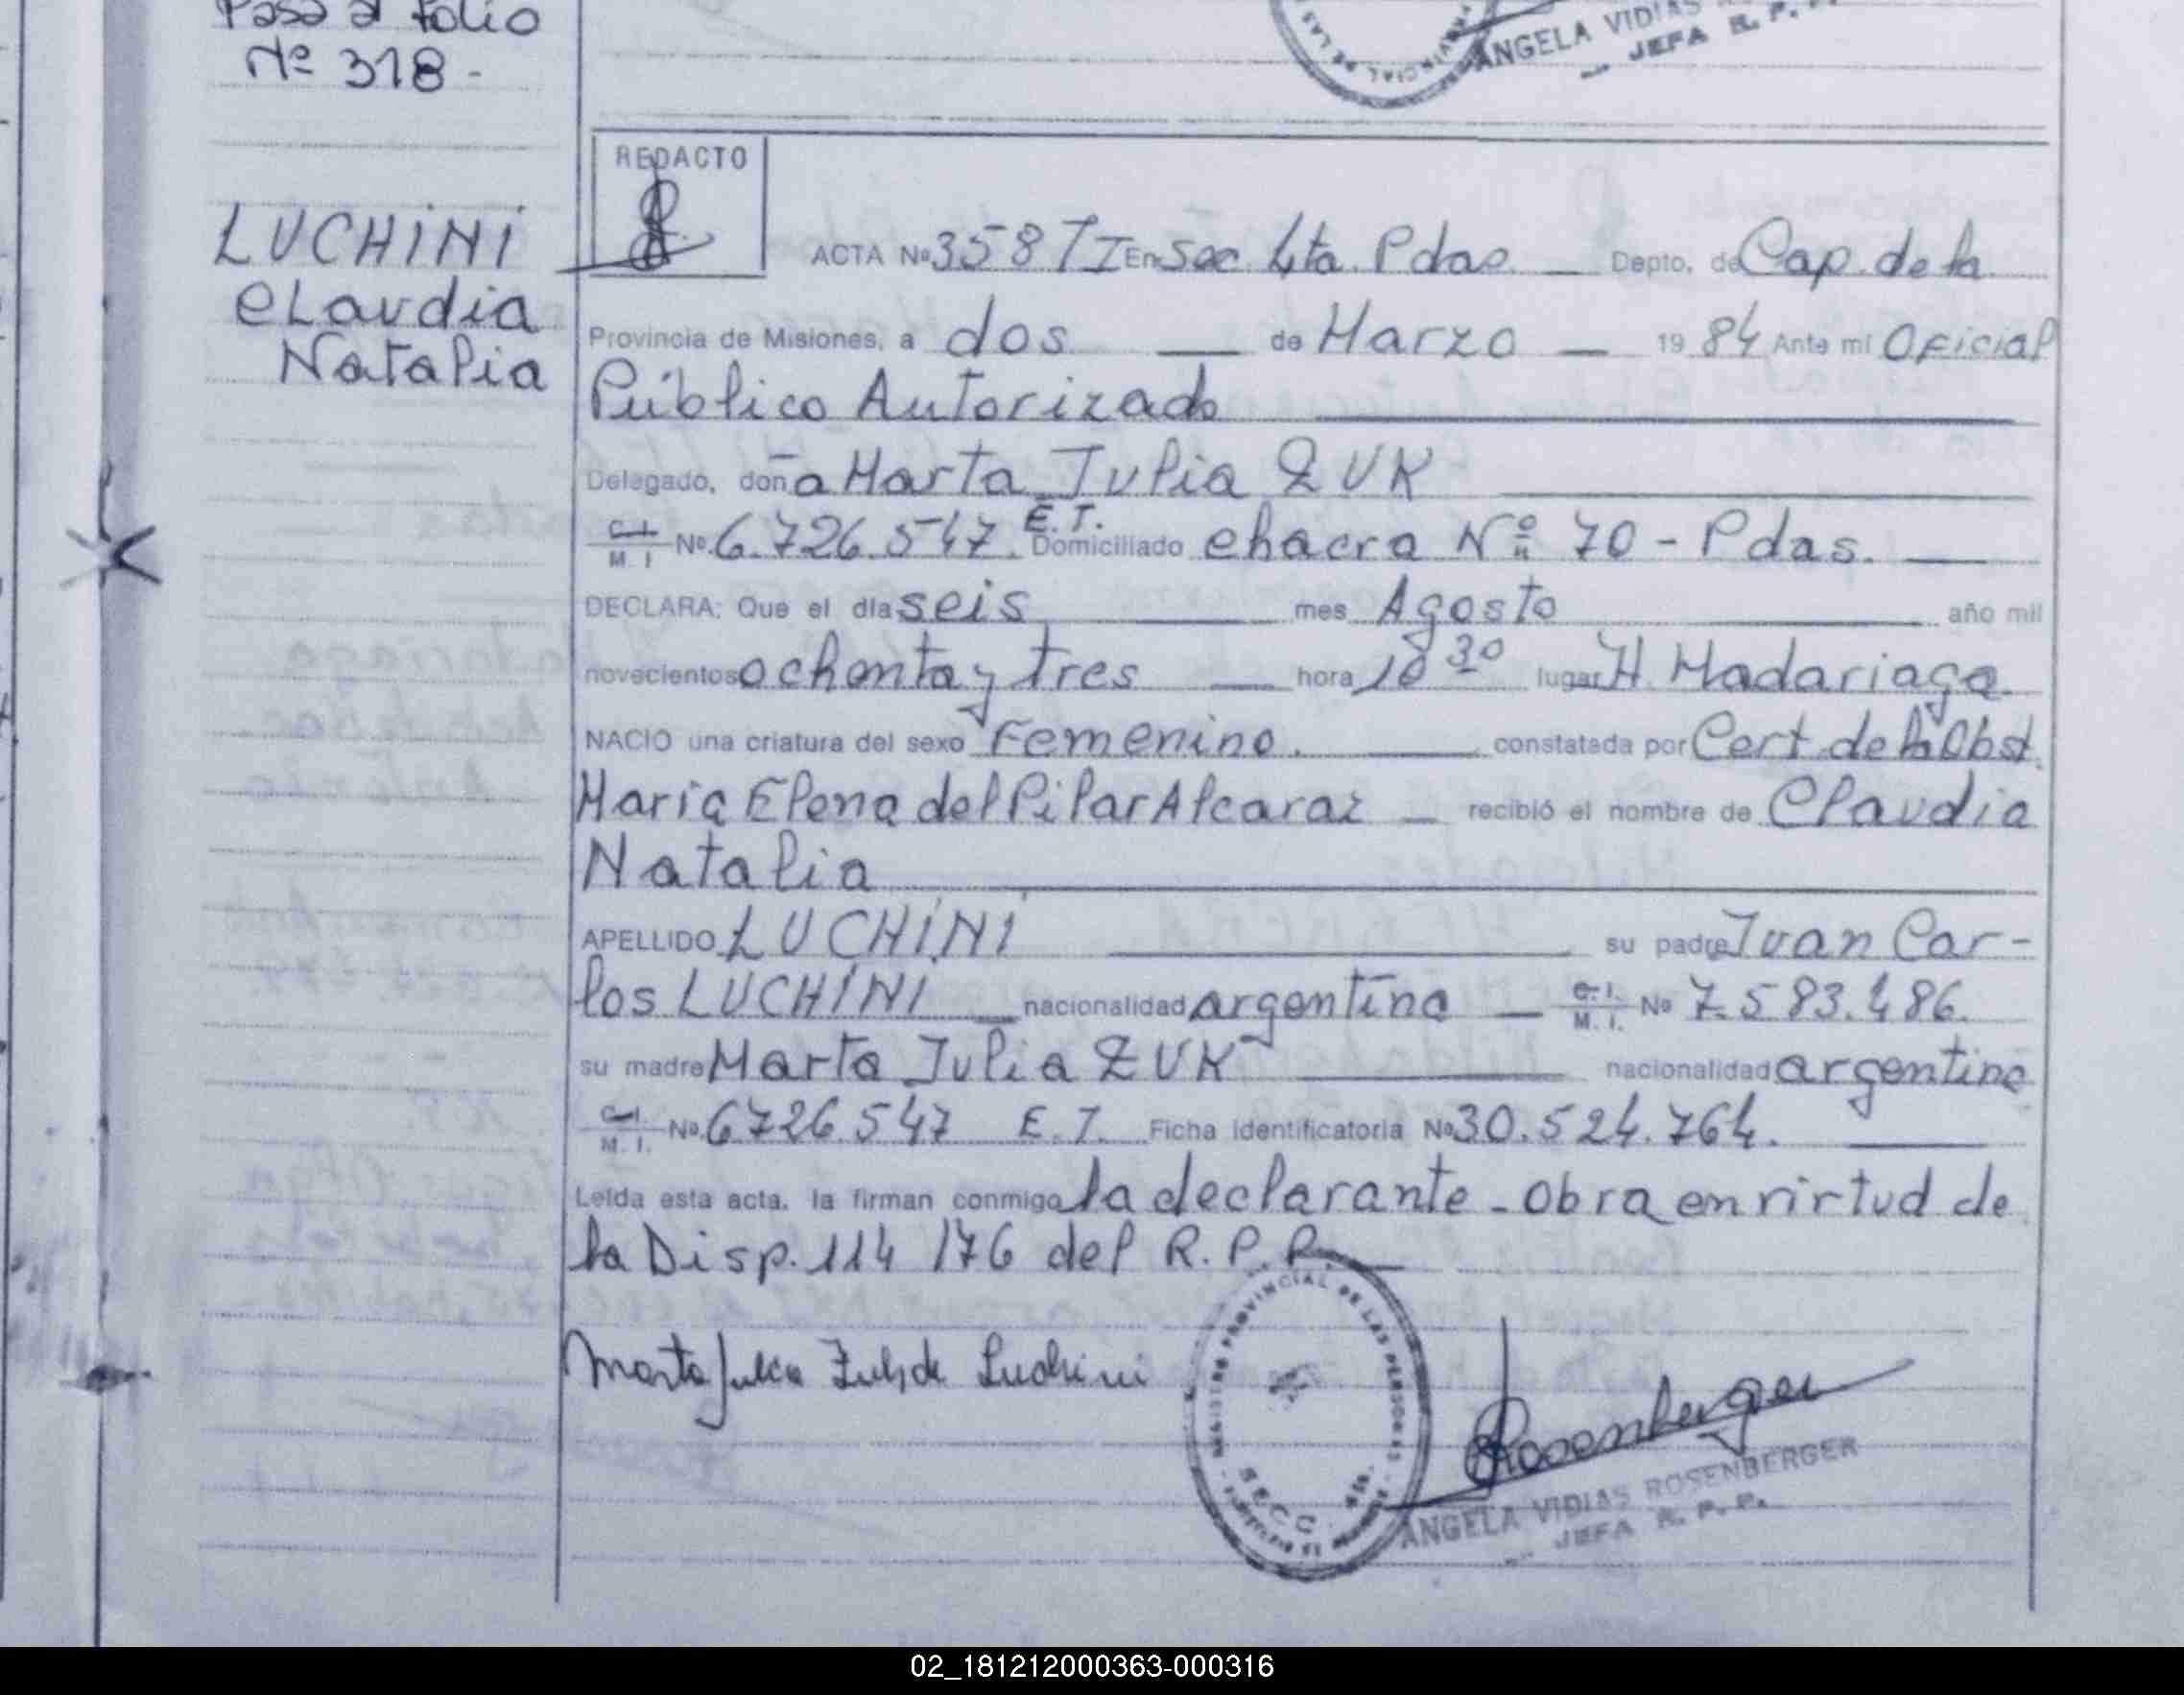 Pasa al folio
Nº 318-
ANGELA VIDIAS
JEFA R. P.
REDACTO
LUCHINI
Claudia
Natalia
ACTA Nº 358 T I En Sec. 4ta. Pdas. — Depto. de Cap. de la
Provincia de Misiones, a dos — de Marzo — 19 84 Ante mi Oficial
Público Autorizado
Delegado, doña Marta Julia ZUK
C.I. M. I Nº 6.726.547. E.T. Domiciliado chacra Nº 70 - Pdas. —
DECLARA: Que el día seis — mes Agosto — año mil
novecientos ochenta y tres — hora 10 30 lugar H. Madariaga
NACIO una criatura del sexo Femenino. — constatada por Cert. de la Obst.
María Elena del Pilar Alcaraz — recibió el nombre de Claudia
Natalia
APELLIDO LUCHINI — su padre Juan Car-
los LUCHINI — nacionalidad argentina — C.I. M. I. Nº 7.583.486.
su madre Marta Julia ZUK — nacionalidad argentina
C.I. M. I. Nº 6726.547 E.T. Ficha Identificatoria Nº 30.524.764. —
Leída esta acta, la firman conmigo la declarante - Obra en virtud de
la Disp. 114 /76 del R.P.P. —
Marta Julia Zuk de Luchini
REGISTRO PROVINCIAL DE LAS PERSONAS
SECC. 4ta.
Rosenberger
ANGELA VIDIAS ROSENBERGER
JEFA R. P. P.
02_181212000363-000316